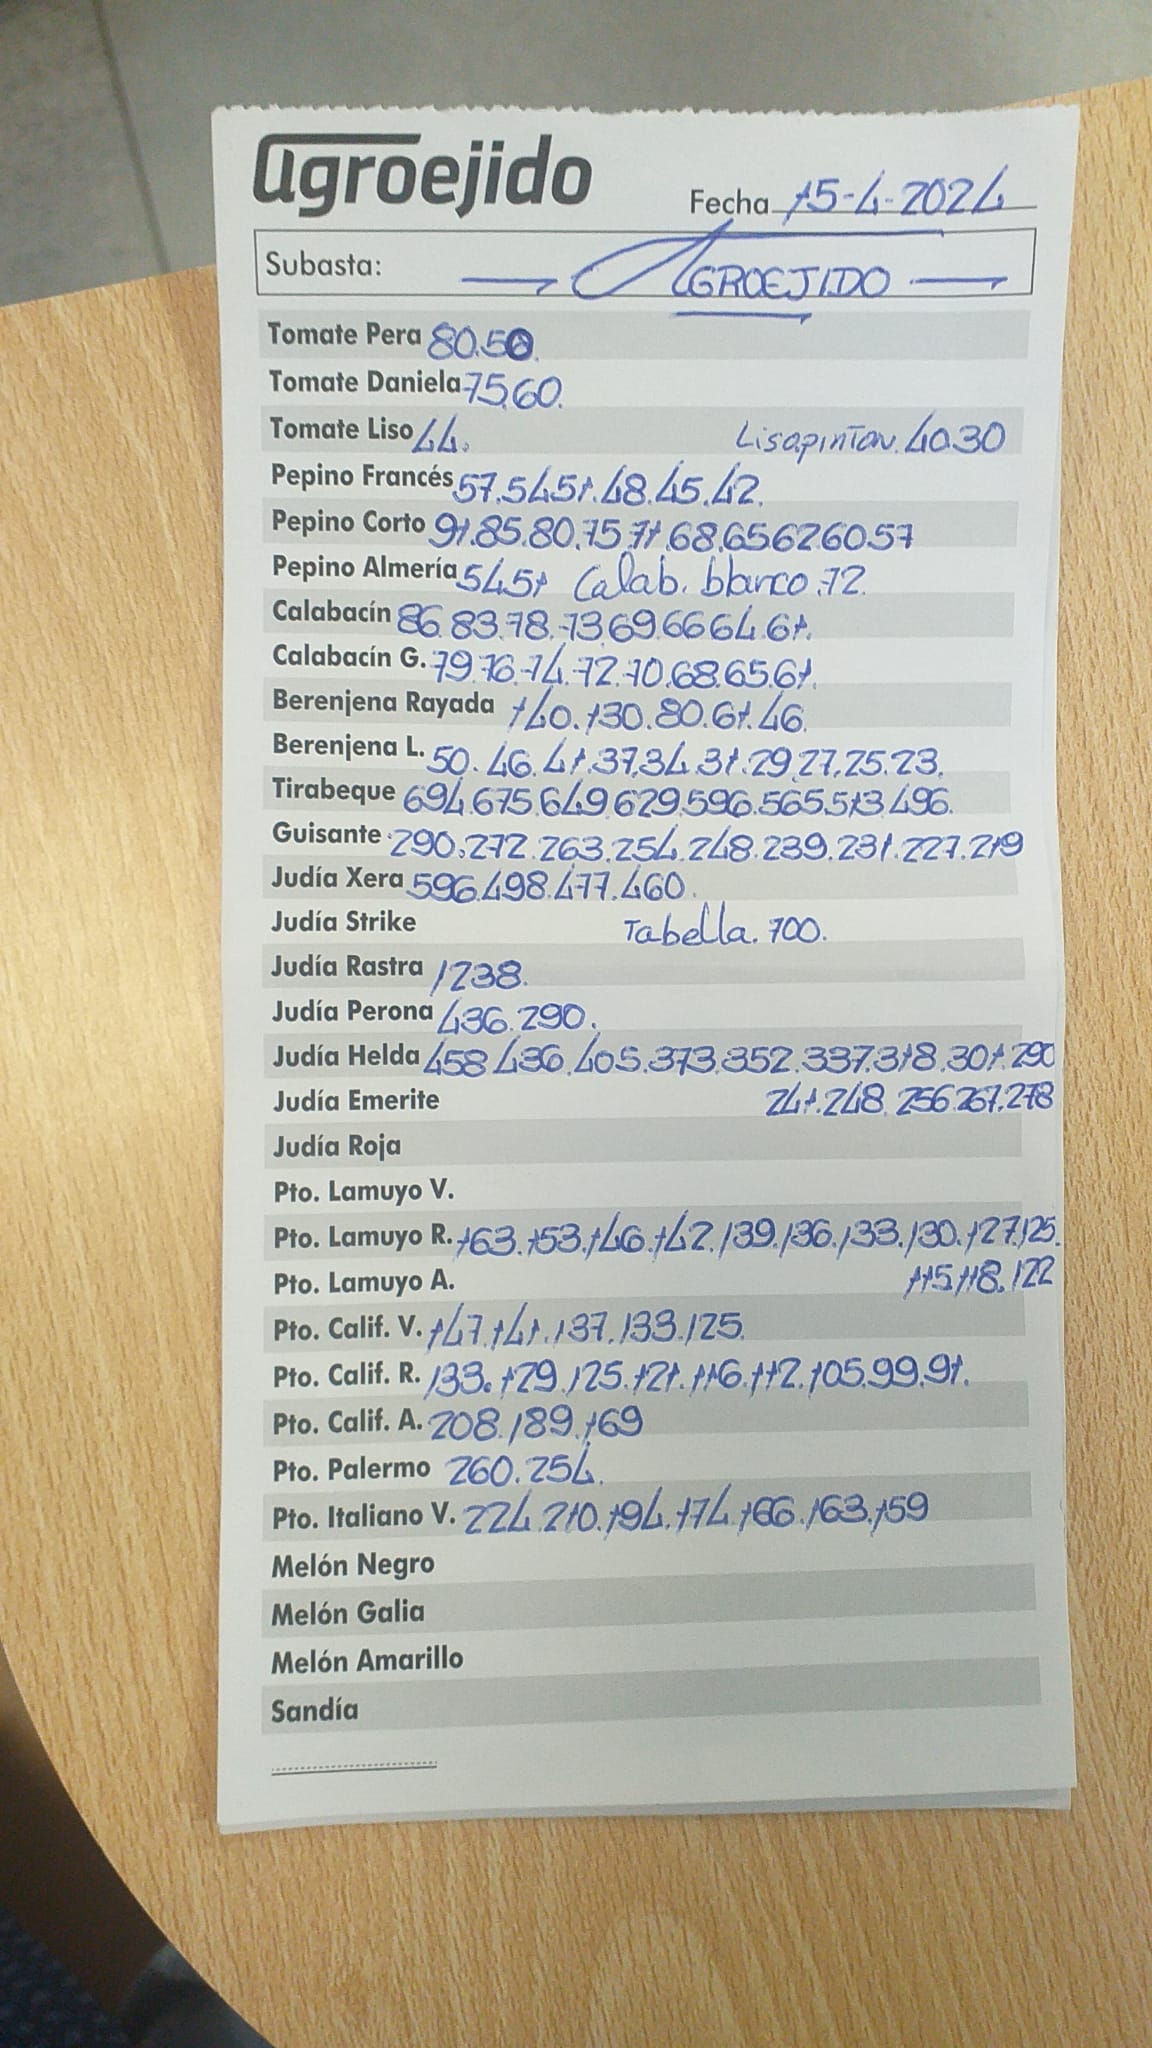 agroejido
Fecha 15-4-2024
Subasta: AGROEJIDO
Tomate Pera 80.50.
Tomate Daniela 75.60.
Tomate Liso 44. Liso pinton. 40.30
Pepino Francés 57.54.51.48.45.42.
Pepino Corto 91.85.80.75.71.68.65.62.60.57
Pepino Almería 54.51 Calab. blanco.72.
Calabacín 86.83.78.73.69.66.64.61.
Calabacín G. 79.76.74.72.70.68.65.61.
Berenjena Rayada 140.130.80.61.46.
Berenjena L. 50.46.41.37.34.31.29.27.25.23.
Tirabeque 694.675.649.629.596.565.513.496.
Guisante 290.272.263.254.248.239.231.227.219
Judía Xera 596.498.477.460.
Judía Strike Tabella.700.
Judía Rastra 1238.
Judía Perona 436.290.
Judía Helda 458.436.405.373.352.337.318.301.290
Judía Emerite 241.248.256.267.278
Judía Roja
Pto. Lamuyo V.
Pto. Lamuyo R. 163.153.146.142.139.136.133.130.127.125.
Pto. Lamuyo A. 115.118.122
Pto. Calif. V. 147.141.137.133.125.
Pto. Calif. R. 133.129.125.121.116.112.105.99.91.
Pto. Calif. A. 208.189.169
Pto. Palermo 260.254.
Pto. Italiano V. 224.210.194.174.166.163.159
Melón Negro
Melón Galia
Melón Amarillo
Sandía